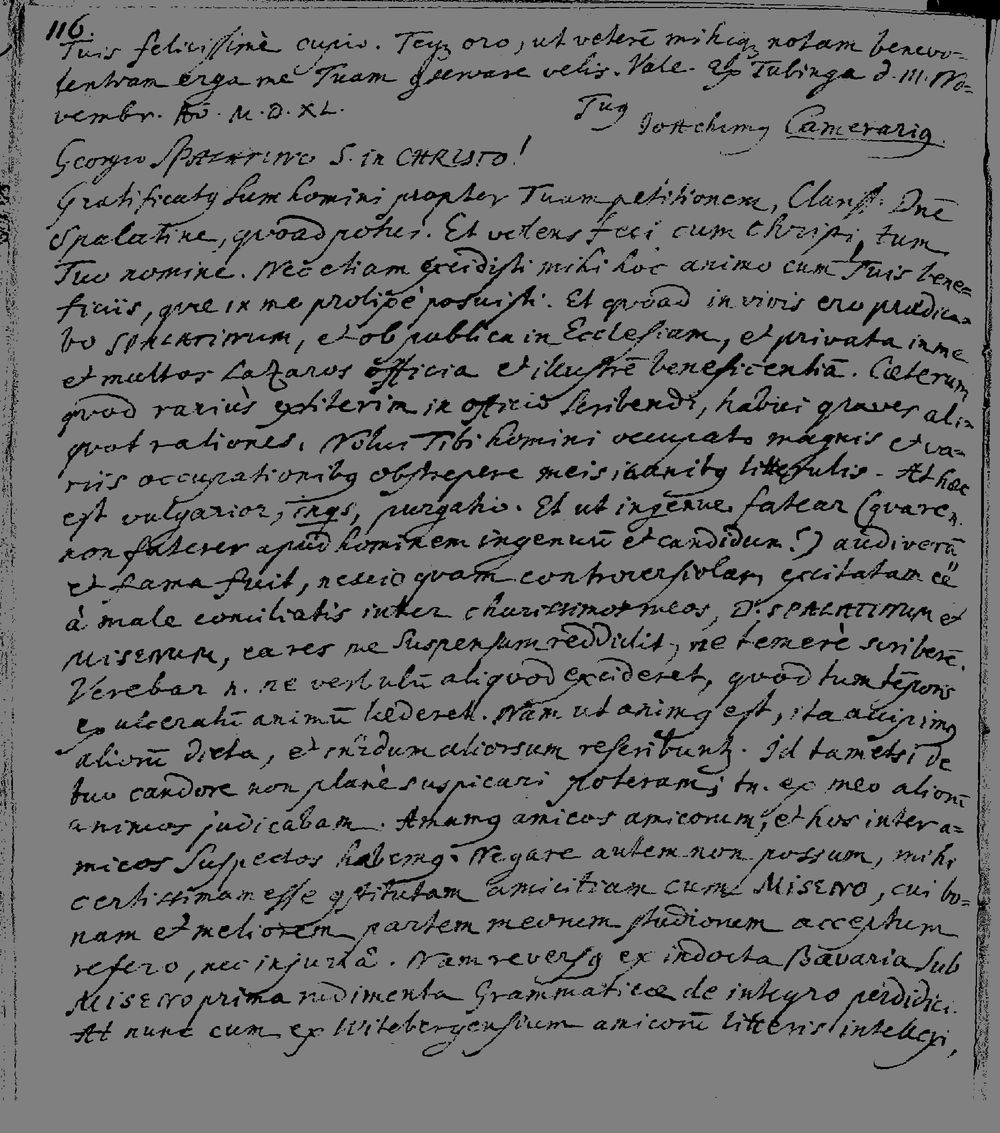 116.
Tuis felicissimè cupio. Teq; oro, ut veterē mihiq; notam benevo-
lentiam erga me Tuam qservare velis. Vale. Ex Tubinga d. III. No-
vembr. Aō. M. D. XL.
Tuq
Joachimq Camerariq.
Georgio SPALATINO S. in CHRISTO!
Gratificatq sum homini propter Tuam petitionem, Clariss. Dnē
Spalatine, qvoad potui. Et volens feci cum Christi, tum
Tuo nomine. Nec etiam excidisti mihi hoc animo cum Tuis bene-
ficiis, qvæ in me prolixè posuisti. Et qvoad in vivis ero prædica-
bo SPALATINUM, et ob publica in Ecclesiam, et privata in me
et multos Lazaros officia et illustrē beneficentiā. Cæterum
qvod rariùs extiterim in officio scribendi, habui graves ali-
qvot rationes. Nolui Tibi homini occupato magnis et va-
riis occupationibq obstrepere meis inanibq litterulis. At hæc
est vulgarior, inqs, purgatio. Et ut ingenuè fatear (qvare n.
non faterer apud hominem ingenuū et candidum?) audiverā
et fama fuit, nescio qvam controversiolam excitatam eē
à male conciliatis inter charissimos meos, D. SPALATINUM et
MISENUM, ea res me suspensum reddidit, ne temerè scriberē.
Verebar n. ne verbulū aliqvod excideret, qvod tum tēporis
exulceratū animū læderet. Nam ut animq est, ita accipimq
aliorū dicta, et interdum aliorsum rescribunt. Id tametsi de
tuo candore non planè suspicari poteram, tn. ex meo aliorū
animos judicabam. Amamq amicos amicorum, et hos inter a-
micos suspectos habemq. Negare autem non possum, mihi
certissimam esse qstitutam amicitiam cum MISENO, cui bo-
nam et meliorem partem meorum studiorum acceptum
refero, nec injuriâ. Nam reversq ex indocta Bavaria sub
MISENO prima rudimenta Grammaticæ de integro perdidici.
At nunc cum ex Witebergensium amicorū litteris intellexi,